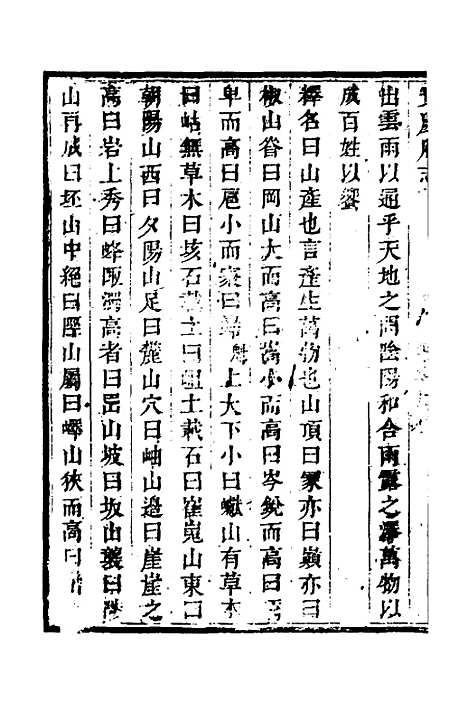 出雲雨以通乎天地之間陰陽和合雨露之澤萬物以
成百姓以饗
釋名曰山產也言產生萬物也山頂曰冢亦曰巔亦曰
椒山脊曰岡山大而高曰嵩小而高曰岑銳而高曰
卑而高曰扈小而衆曰巋上大下小曰巘山有草木
曰岵無草木曰垓石載土曰岨土載石曰崔嵬山東曰
朝陽山西曰夕陽山足曰麓山穴曰岫山邊曰崖崖之
高曰岩上秀曰峰陬隅高者曰岊山坡曰坂山襲曰陟
山再成曰坯山中絕曰陘山屬曰嶧山狹而高曰